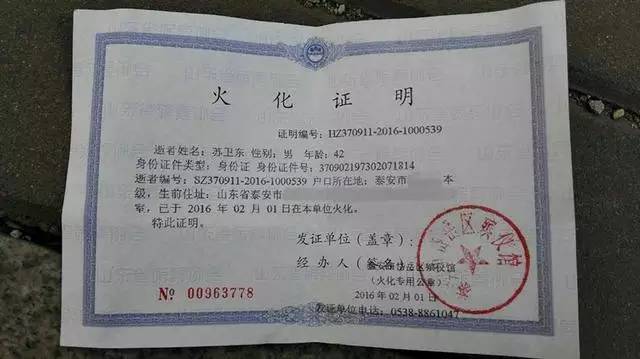 火化证明
证明编号:HZ370911-2016-1000539
逝者姓名:苏卫东 性别:男 年龄:42
身份证件类型:身份证 身份证件号:370902197302071814
逝者编号:SZ370911-2016-1000539 户口所在地:泰安市 本
级,生前住址:山东省泰安市
室,已于 2016 年 02 月 01 日在本单位火化。
特此证明。
发证单位(盖章):
经办人(签名)
岱岳区殡仪馆
(火化专用公章)
2016 年 02 月 01 日
发证单位电话:0538-8861047
№ 00963778